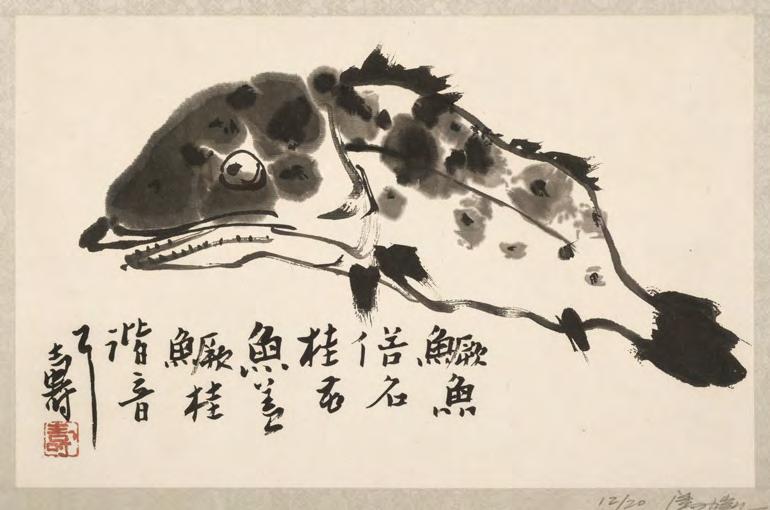 鱖魚
俗名
桂花
魚蓋
鱖桂
諧音
耳
壽
壽
12/20